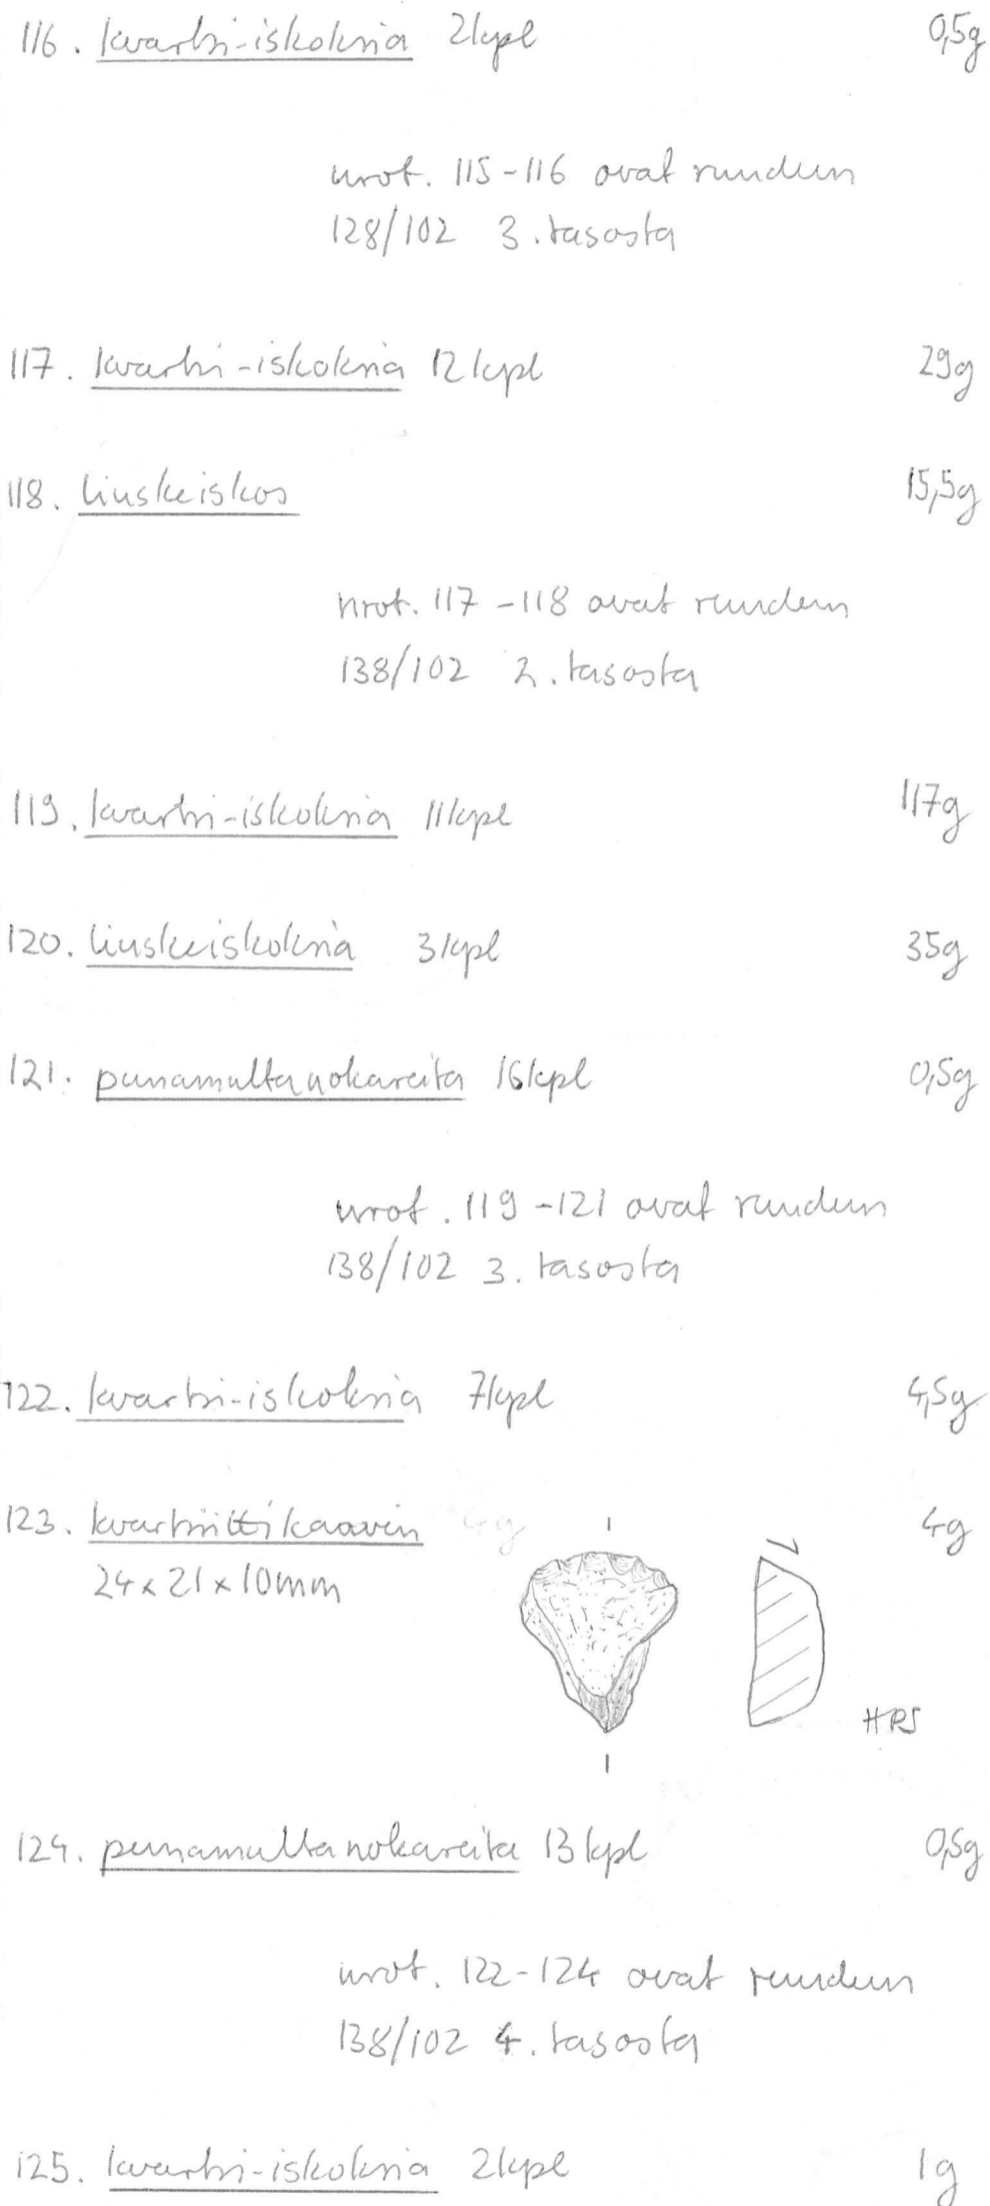 116. kvartsi-iskoksia 2kpl 0,5g
nrot. 115-116 ovat ruudun
128/102 3. tasosta
117. kvartsi-iskoksia 12kpl 29g
118. liuskeiskos 15,5g
nrot. 117-118 ovat ruudun
138/102 2. tasosta
119. kvartsi-iskoksia 11kpl 117g
120. liuskeiskoksia 3kpl 35g
121. punamultanokareita 16kpl 0,5g
nrot. 119-121 ovat ruudun
138/102 3. tasosta
122. kvartsi-iskoksia 7kpl 4,5g
123. kvartsiittikaavin 4g 4g
24x21x10mm
HRS
124. punamultanokareita 13kpl 0,5g
nrot. 122-124 ovat ruudun
138/102 4. tasosta
125. kvartsi-iskoksia 2kpl 1g